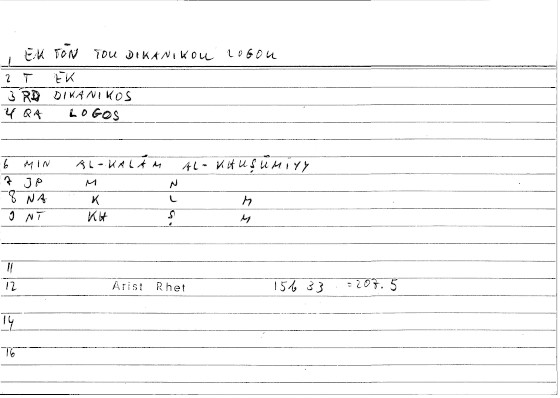 1 EK TŌN TOU DIKANIKOU LOGOU
2 T EK
3 RD DIKANIKOS
4 QA LOGOS
6 MIN AL-KALĀM AL-KHUṢŪMIYY
7 JP M N
8 NA K L M
9 NT KH Ṣ M
11
12 Arist Rhet 156 33 =207.5
14
16